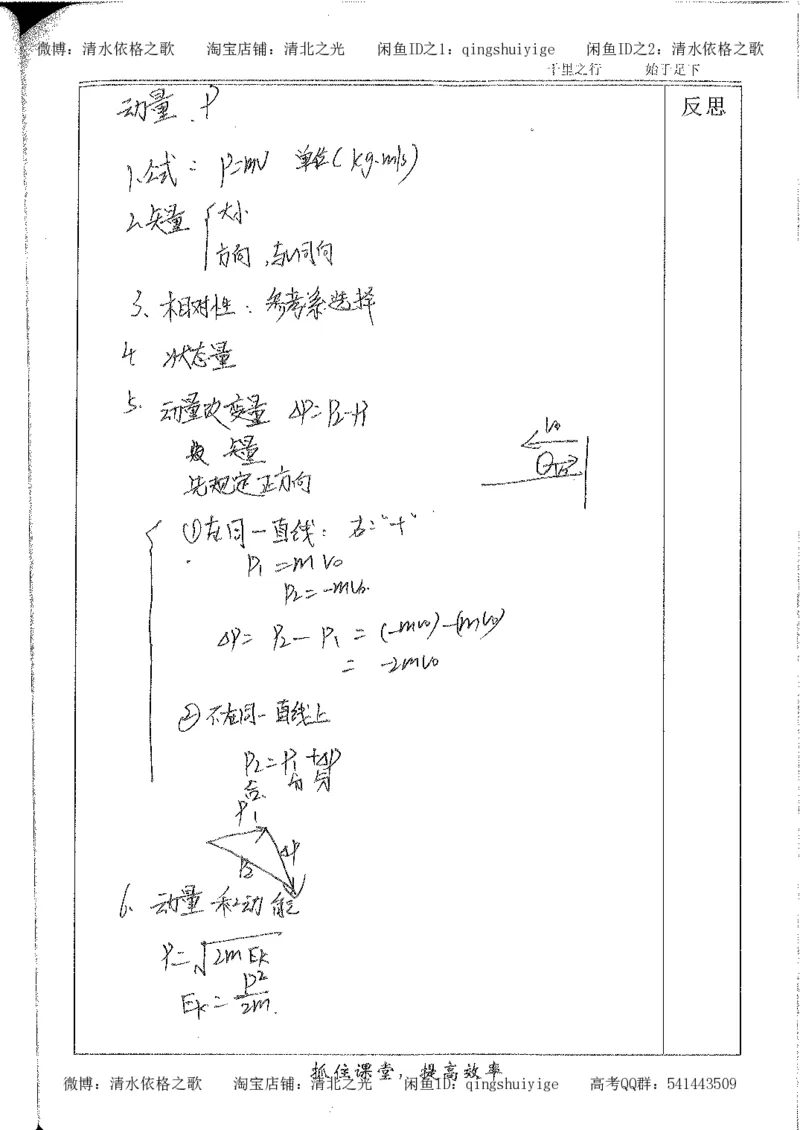 微博：清水依格之歌 淘宝店铺：清北之光 闲鱼ID之1：qingshuiyige 闲鱼ID之2：清水依格之歌
千里之行 始于足下
反思
动量 P
1.公式： P=mv 单位(kg·m/s)
2.矢量 { 大小
方向，与v同向
3、相对性：参考系选择
4 状态量
5. 动量改变量 ΔP=P₂-P₁
矢量
先规定正方向
V₀
V₀
①在同一直线：右:"+"
P₁=mV₀
P₂=-mV₀.
ΔP= P₂-P₁ = (-mv₀)-(mV₀)
= -2mV₀
②不在同一直线上
P₂=P₁+ΔP
合 分 分
P₁
ΔP
P₂
6. 动量和动能
P=√2mEk
Ek= P²/2m.
抓住课堂，提高效率
微博：清水依格之歌 淘宝店铺：清北之光 闲鱼ID：qingshuiyige 高考QQ群：541443509